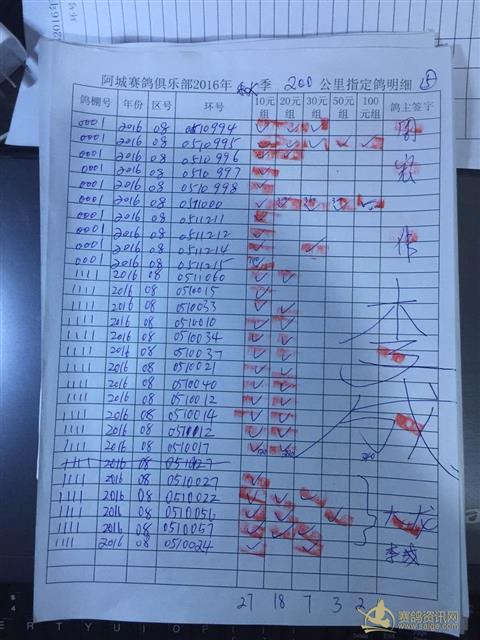 2016年
环号
阿城赛鸽俱乐部2016年 秋 季 200 公里指定鸽明细 ⑤
鸽棚号 年份 区号 环号 10元组 20元组 30元组 50元组 100元组 鸽主签字
0001 2016 08 0510994 ✓ ✓ ✓
0001 2016 08 0510995 ✓ ✓ ✓ ✓ ✓
0001 2016 08 0510996 ✓ ✓
0001 2016 08 0510997 ✓
0001 2016 08 0510998 ✓
0001 2016 08 0511000 ✓
0001 2016 08 0511211 ✓
0001 2016 08 0511212 ✓
0001 2016 08 0511214 ✓ ✓
0001 2016 08 0511215
1111 2016 08 0511060 ✓ ✓
1111 2016 08 0510015 ✓
1111 2016 08 0510033 ✓ ✓
1111 2016 08 0510010 ✓ ✓
1111 2016 08 0510034 ✓ ✓
1111 2016 08 0510037 ✓ ✓
1111 2016 08 0510021 ✓ ✓
1111 2016 08 0510040 ✓ ✓
1111 2016 08 0510012 ✓ ✓
1111 2016 08 0510014 ✓ ✓
1111 2016 08 0510012 ✓ ✓
1111 2016 08 0510017 ✓ ✓
1111 2016 08 0510027
1111 2016 08 0510027 ✓
1111 2016 08 0510022 ✓ ✓ ✓
1111 2016 08 0510056 ✓ ✓ ✓ ✓
1111 2016 08 0510057 ✓ ✓ ✓
1111 2016 08 0510024 ✓ ✓
李成
27 18 7 3 2
赛鸽资讯网
www.saige.com